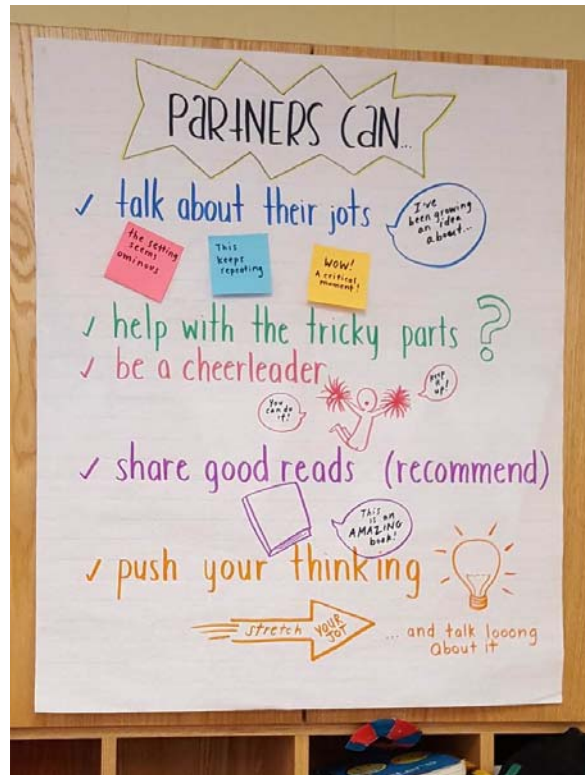 PARTNERS CAN...
✓ talk about their jots
I've
been growing
an idea
about...
the setting
seems
ominous
This
keeps
repeating
WOW!
A critical
moment!
✓ help with the tricky parts ?
✓ be a cheerleader
You
can do
it!
Keep
it
up!
✓ share good reads (recommend)
This
is an
AMAZING
book!
✓ push your thinking
stretch YOUR
JOT
... and talk looong
about it